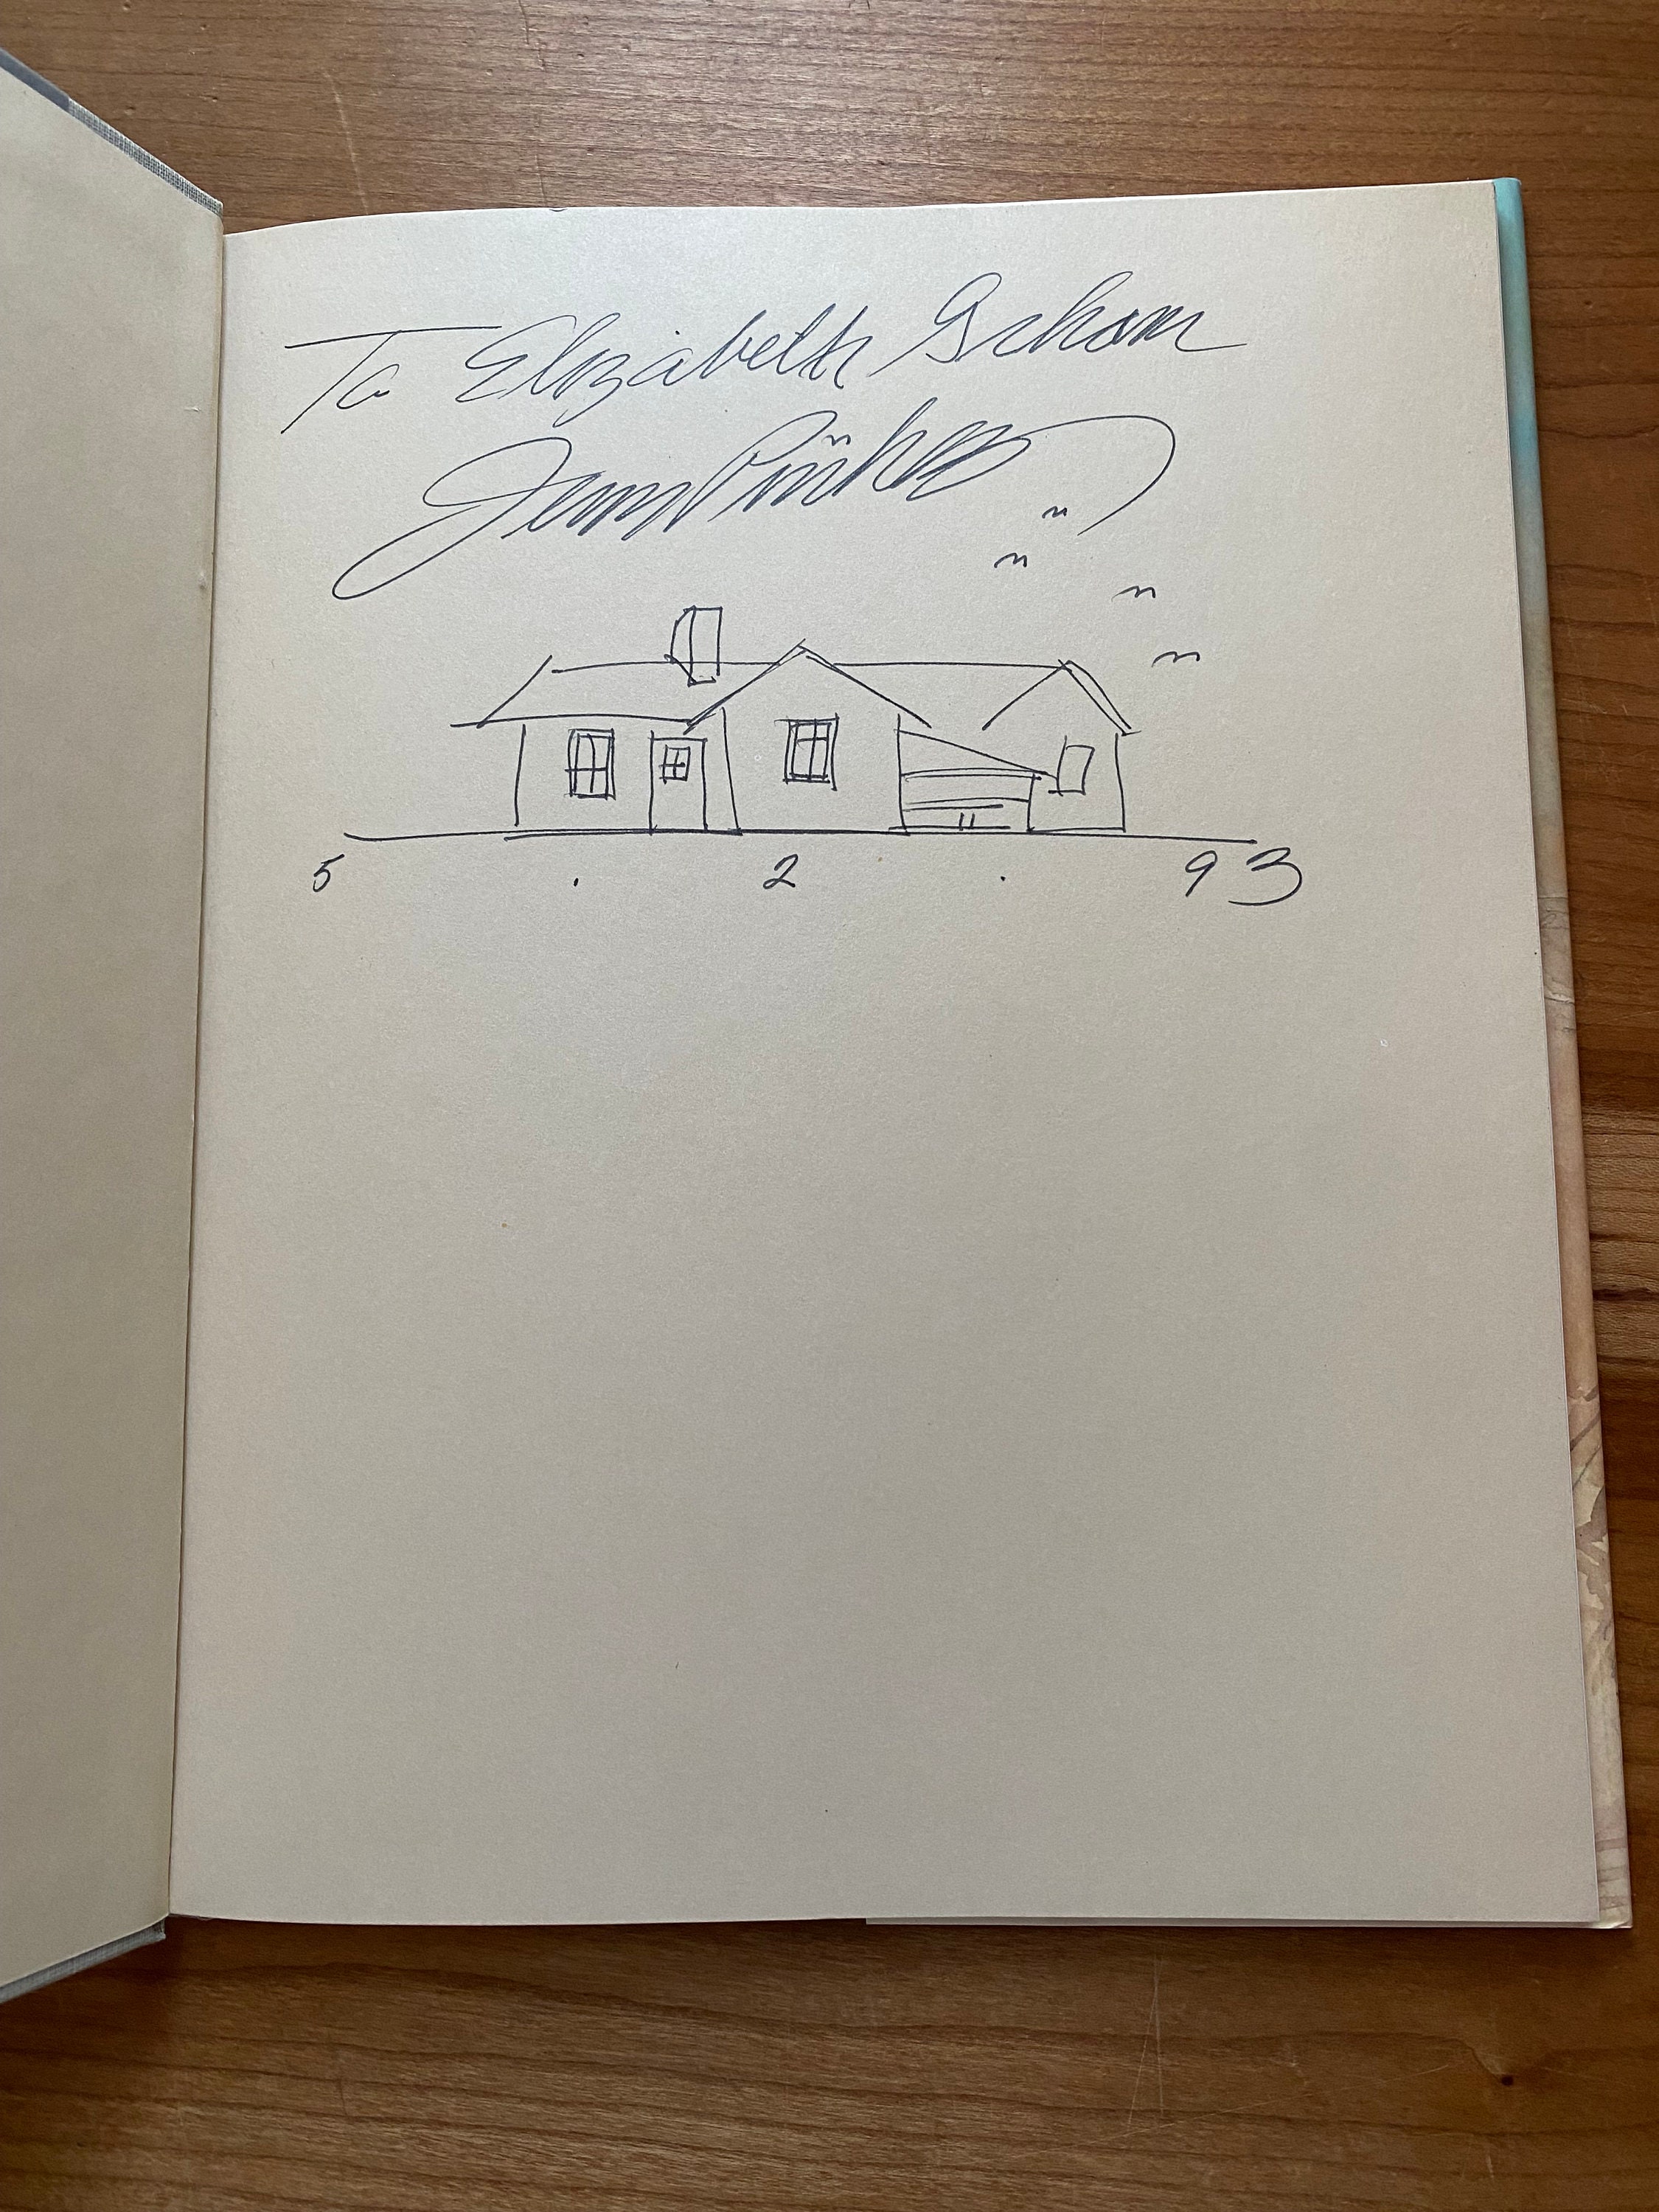 To Elizabeth
Jerry Pinkney
5 . 2 . 93